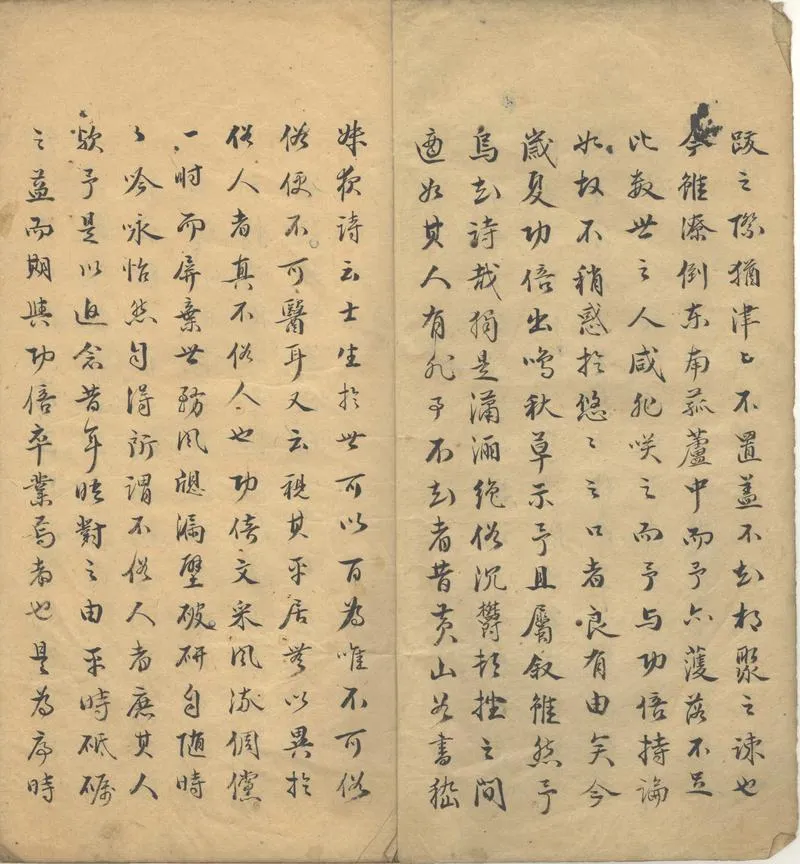 跋之際猶津〻不置蓋不知相聚之疎也
今雖潦倒东南菰蘆中而予亦䕶落不足
比数世之人咸非咲之而予与功倍持論
如故不稍惑於悠〻之口者良有由矣今
歲夏功倍出鳴秋草示予且屬叙雖然予
烏知詩哉獨是瀟洒绝俗沉鬱頓挫之間
適如其人有非予不知者昔黄山谷書嵇
姝夜詩云士生於世可以百為唯不可俗
俗便不可醫耳又云視其平居無以異於
俗人者真不俗人也功倍文采风流倜儻
一时而屏棄世務风牕漏壁破研自随時
〻吟咏怡然自得所谓不俗人者庶其人
欤予是以追念昔年晤對之由平時砥礪
之益而期與功倍卒業焉者也是為序時